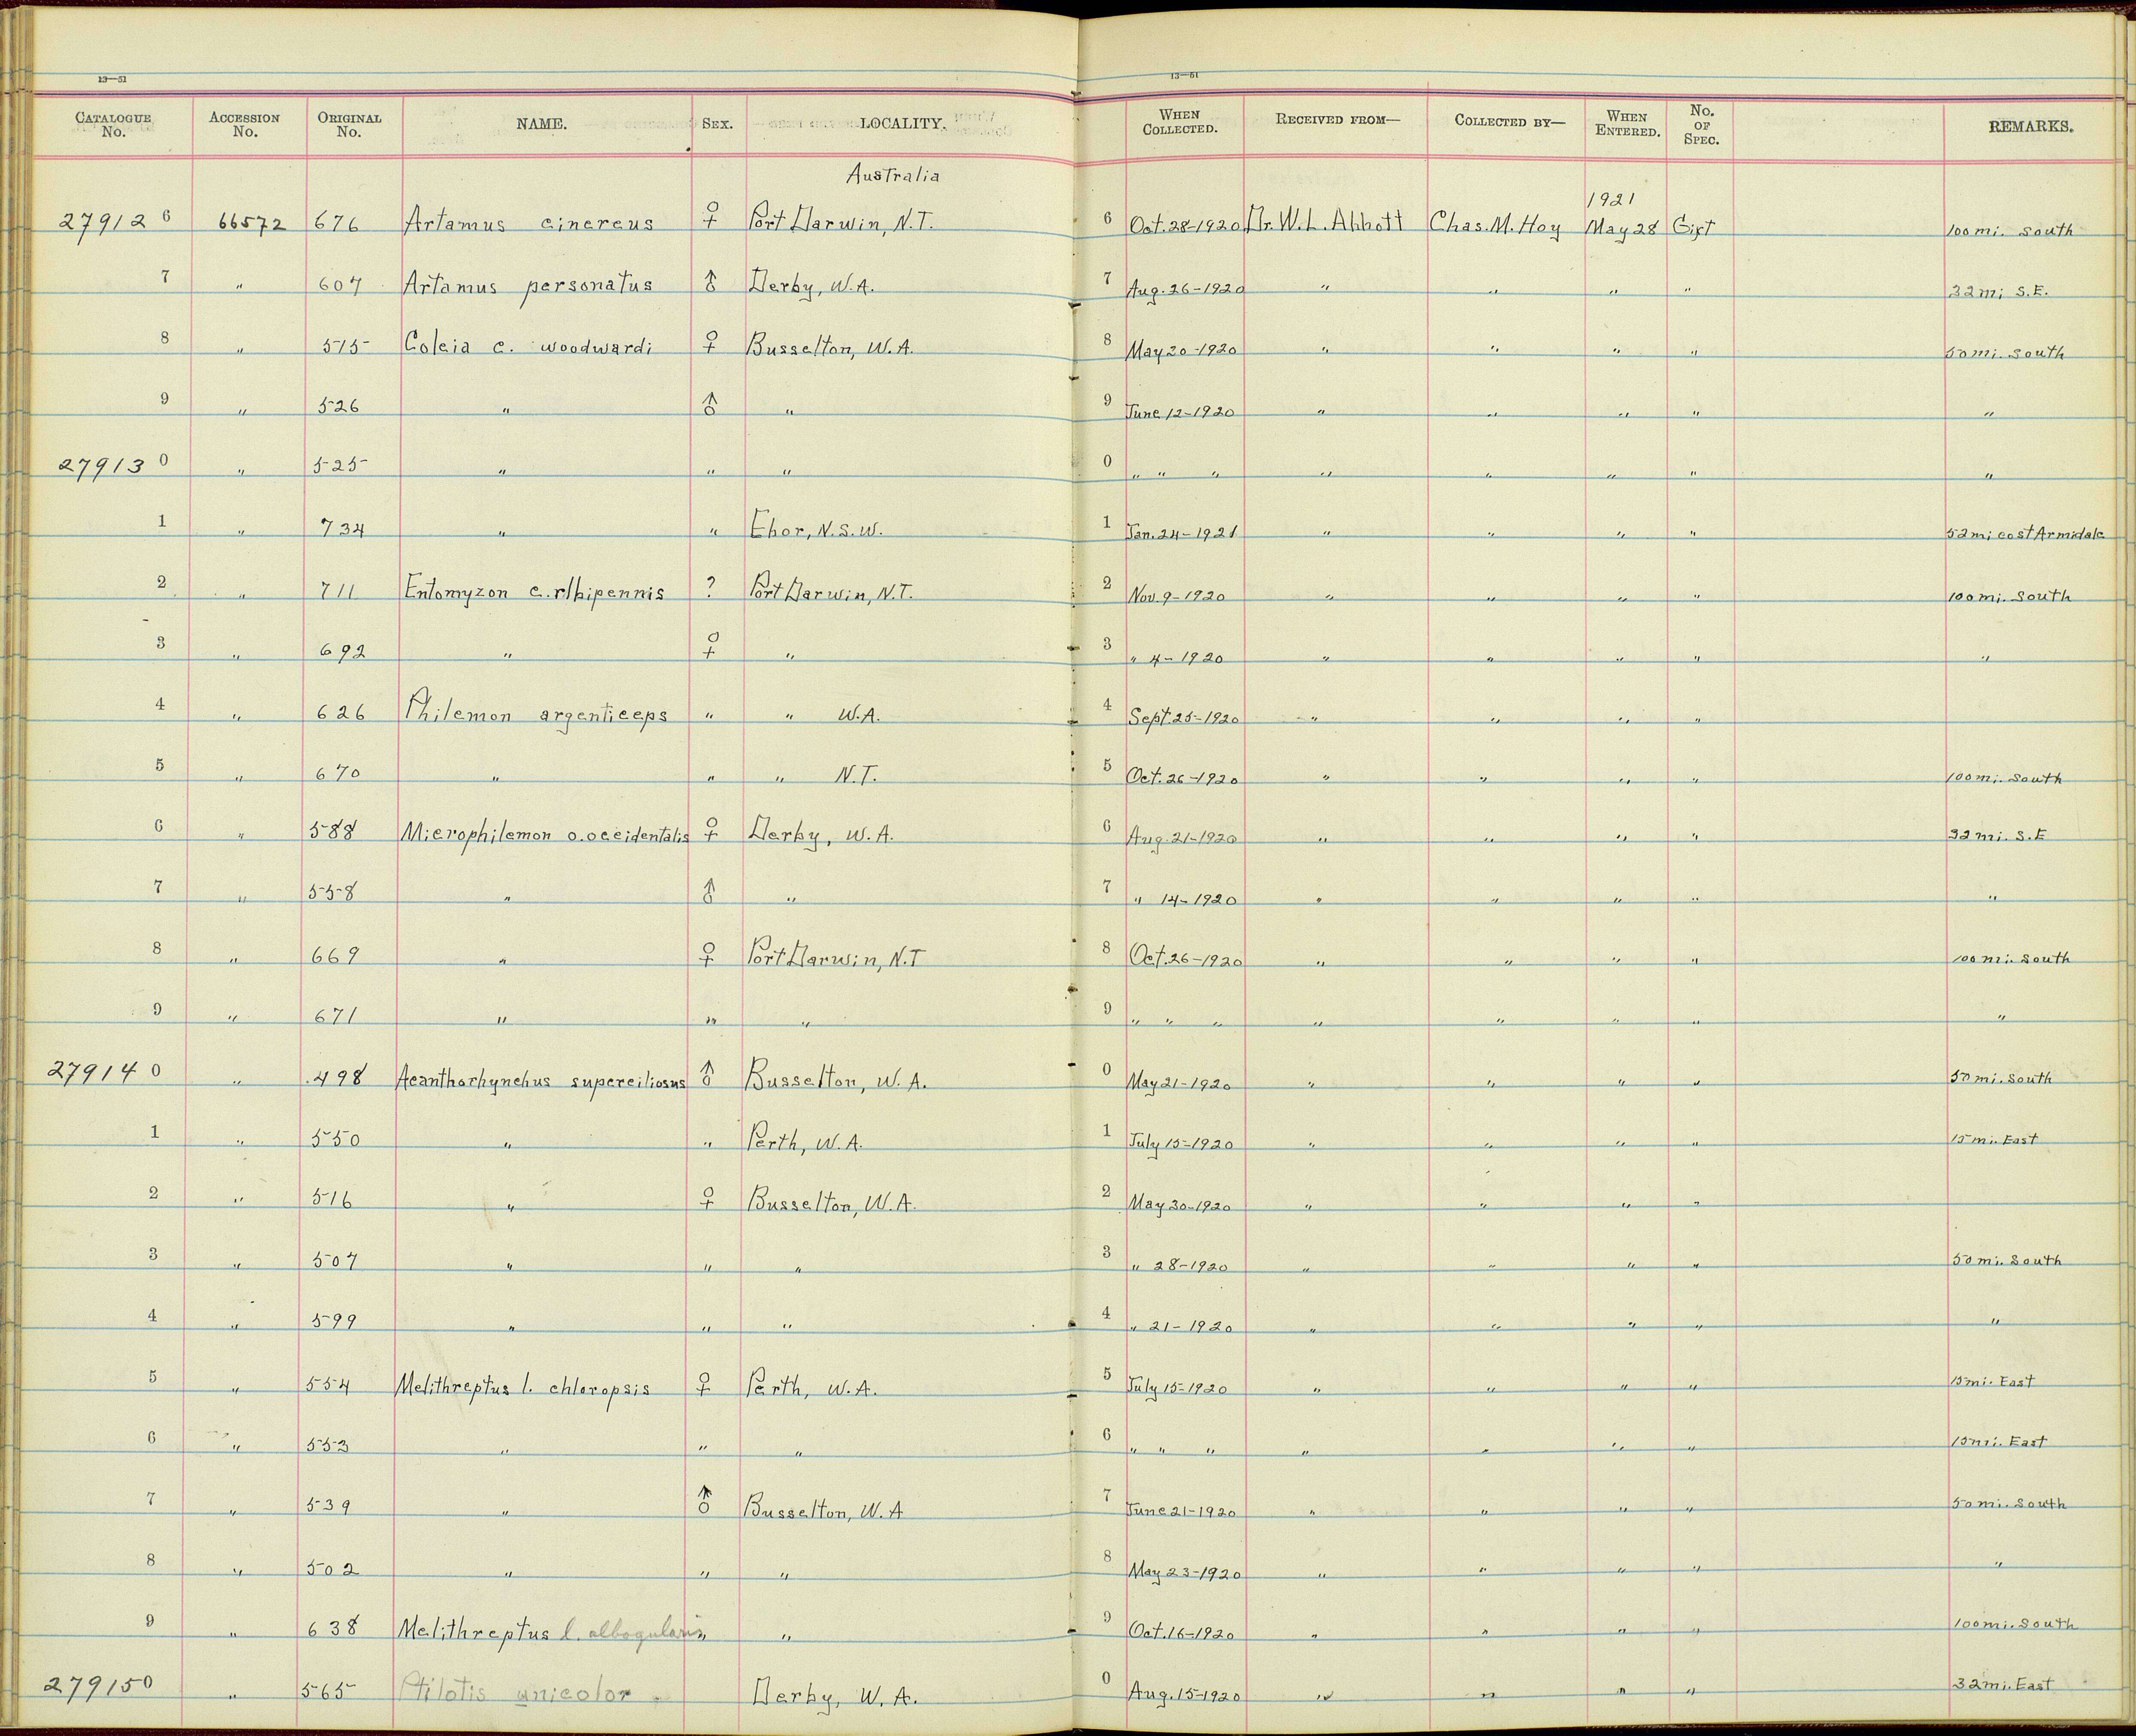 13—51 13—51
CATALOGUE No. ACCESSION No. ORIGINAL No. NAME. SEX. LOCALITY. WHEN COLLECTED. RECEIVED FROM— COLLECTED BY— WHEN ENTERED. No. OF SPEC. REMARKS.
Australia
1921
279126 66572 676 Artamus cinereus ♀ Port Darwin, N.T. 6 Oct. 28-1920 Dr. W. L. Abbott Chas. M. Hoy May 28 Gift 100 mi. South
7 " 607 Artamus personatus ♂ Derby, W.A. 7 Aug. 26-1920 " " " " 32 mi S.E.
8 " 515 Coleia c. woodwardi ♀ Busselton, W.A. 8 May 20-1920 " " " " 50 mi. South
9 " 526 " ♂ " 9 June 12-1920 " " " " "
279130 " 525 " " " 0 " " " " " " " "
1 " 734 " " Ebor, N.S.W. 1 Jan. 24-1921 " " " " 52 mi east Armidale
2 " 711 Entomyzon c. albipennis ? Port Darwin, N.T. 2 Nov. 9-1920 " " " " 100 mi. South
3 " 692 " ♀ " 3 " 4-1920 " " " " "
4 " 626 Philemon argenticeps " " W.A. 4 Sept. 25-1920 " " " "
5 " 670 " " " N.T. 5 Oct. 26-1920 " " " " 100 mi. South
6 " 588 Microphilemon o. occidentalis ♀ Derby, W.A. 6 Aug. 21-1920 " " " " 32 mi. S.E
7 " 558 " ♂ " 7 " 14-1920 " " " " "
8 " 669 " ♀ Port Darwin, N.T 8 Oct. 26-1920 " " " " 100 mi. South
9 " 671 " " " 9 " " " " " " " "
279140 " 498 Acanthorhynchus superciliosus ♂ Busselton, W.A. 0 May 21-1920 " " " " 50 mi. South
1 " 550 " " Perth, W.A. 1 July 15-1920 " " " " 15 mi. East
2 " 516 " ♀ Busselton, W.A. 2 May 30-1920 " " " "
3 " 507 " " " 3 " 28-1920 " " " " 50 mi. South
4 " 599 " " " 4 " 21-1920 " " " " "
5 " 554 Melithreptus l. chloropsis ♀ Perth, W.A. 5 July 15-1920 " " " " 15 mi. East
6 " 553 " " " 6 " " " " " " " 15 mi. East
7 " 539 " ♂ Busselton, W.A 7 June 21-1920 " " " " 50 mi. South
8 " 502 " " " 8 May 23-1920 " " " " "
9 " 638 Melithreptus l. albogularis " " 9 Oct. 16-1920 " " " " 100 mi. South
279150 " 565 Ptilotis unicolor Derby, W.A. 0 Aug. 15-1920 " " " " 32 mi. East